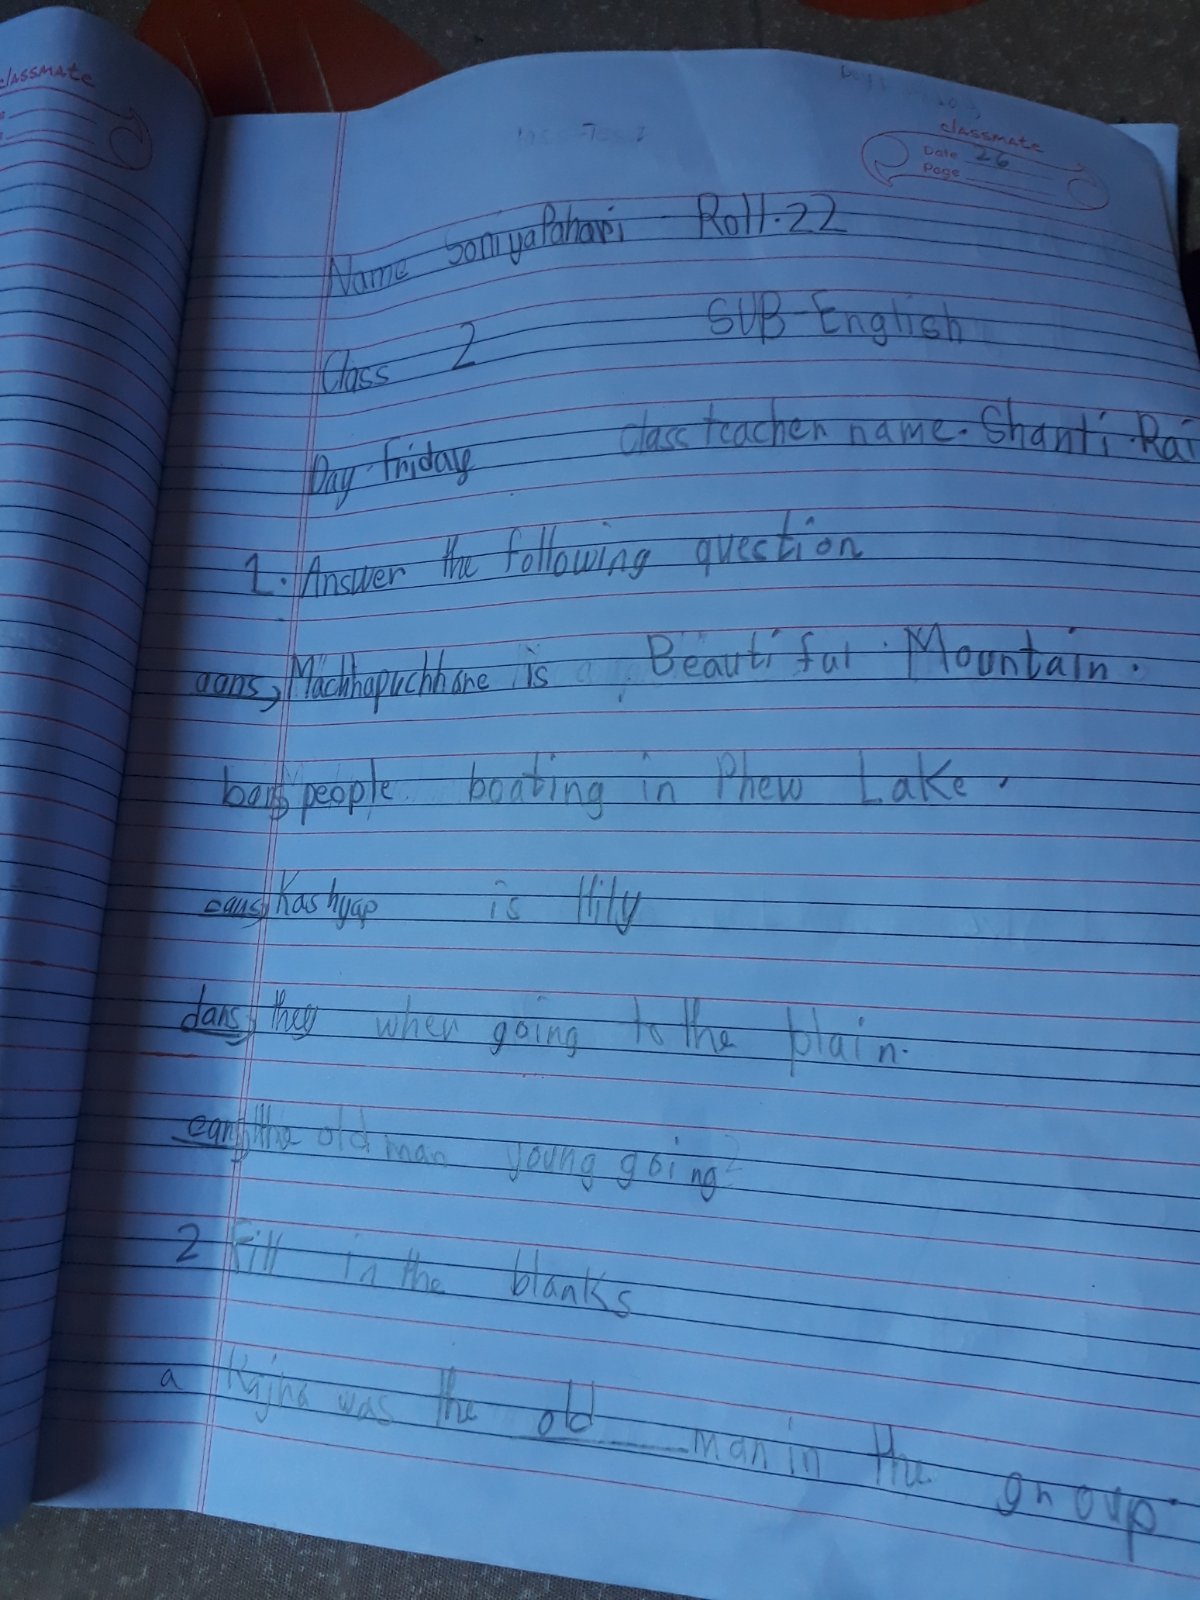 classmate
classmate
Date 26
Page
Name Soniya Pahari Roll.22
Class 2 SUB-English
Day-Friday class teacher name. Shanti.Rai
1. Answer the following question
aans, Machhapuchhare is Beautiful Mountain.
bans people boating in Phew Lake.
cans, Kashyap is Hily
dans, they when going to the plain.
eans, the old man young going?
2 Fill in the blanks
a was the old man in the group.